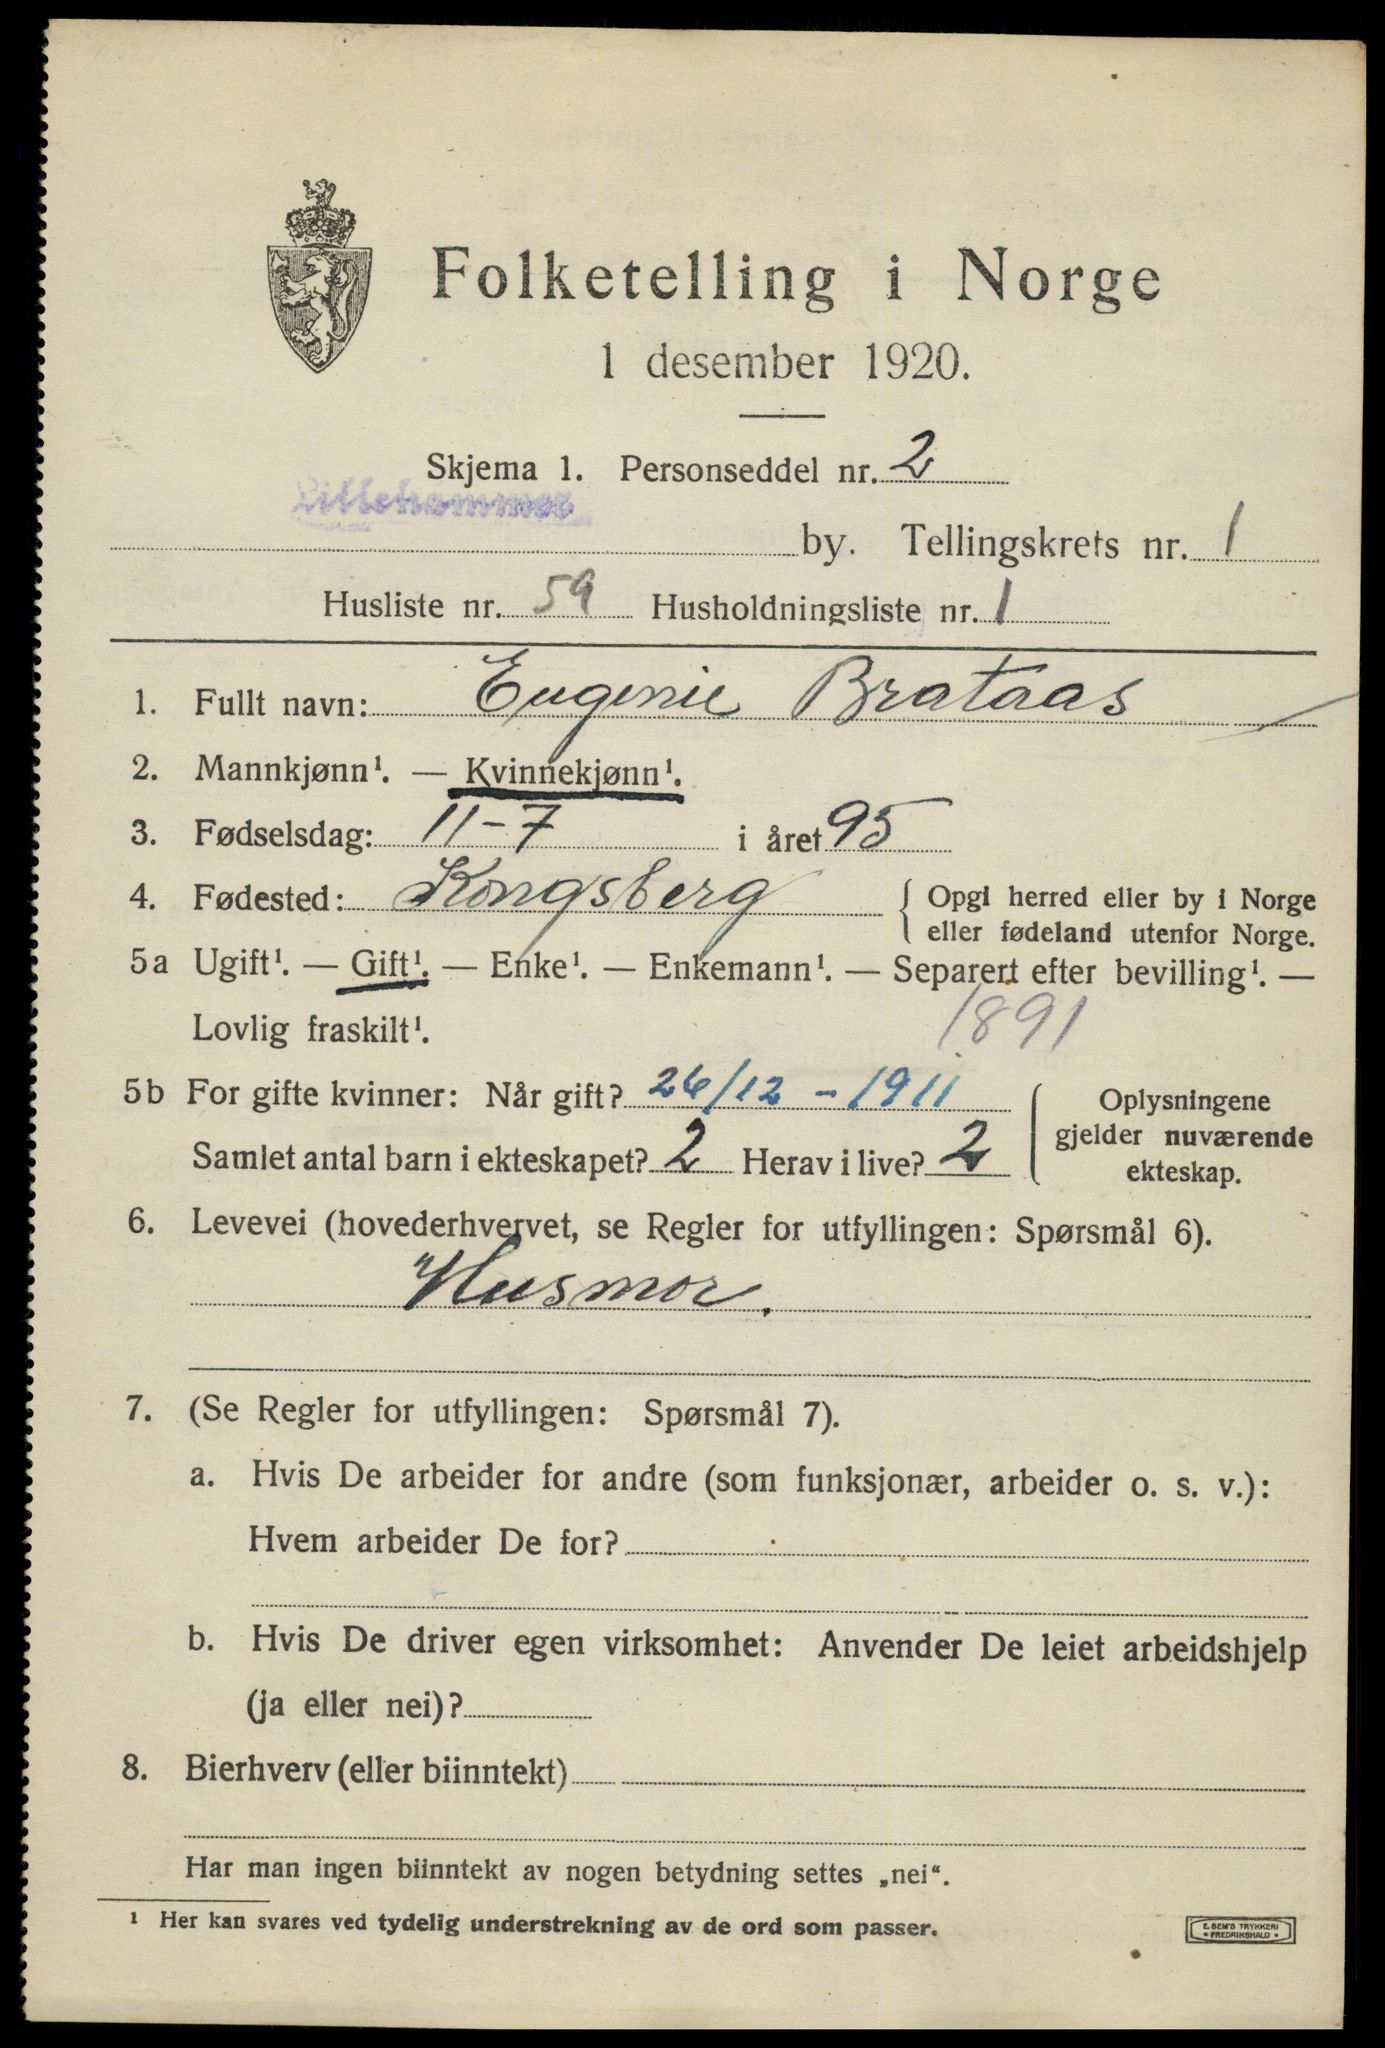 Folketelling i Norge
1 desember 1920.
Skjema 1. Personseddel nr. 2
Lillehammer
by. Tellingskrets nr. 1
Husliste nr. 59 Husholdningsliste nr. 1
1. Fullt navn: Eugenie Brataas
2. Mannkjønn¹. — Kvinnekjønn¹.
3. Fødselsdag: 11-7 i året 95
4. Fødested: Kongsberg { Opgi herred eller by i Norge
eller fødeland utenfor Norge.
5a Ugift¹. — Gift¹. — Enke¹. — Enkemann¹. — Separert efter bevilling¹. —
Lovlig fraskilt¹. 1891
5b For gifte kvinner: Når gift? 26/12 - 1911 { Oplysningene
gjelder nuværende
Samlet antal barn i ekteskapet? 2 Herav i live? 2
ekteskap.
6. Levevei (hovederhvervet, se Regler for utfyllingen: Spørsmål 6).
Husmor.
7. (Se Regler for utfyllingen: Spørsmål 7).
a. Hvis De arbeider for andre (som funksjonær, arbeider o. s. v.):
Hvem arbeider De for?
b. Hvis De driver egen virksomhet: Anvender De leiet arbeidshjelp
(ja eller nei)?
8. Bierhverv (eller biinntekt)
Har man ingen biinntekt av nogen betydning settes „nei“.
¹ Her kan svares ved tydelig understrekning av de ord som passer.
E. SEM'S TRYKKERI
• FREDRIKSHALD •